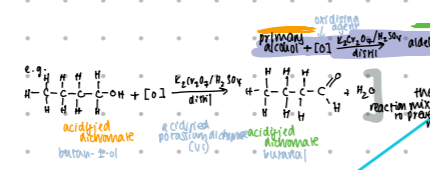 oxidising
agent
primary
alcohol + [O] K₂Cr₂O₇/H₂SO₄ alde
distil
e.g.
H H H H
H-C-C-C-C-OH + [O] K₂Cr₂O₇/H₂SO₄ H-C-C-C-C + H₂O
distil
H H H H
H H H O
H H H H
the
reaction mix
to prev
acidified
dichromate
butan-1-ol
acidified
potassium dichromate
(VI)
acidified
dichromate
butanal